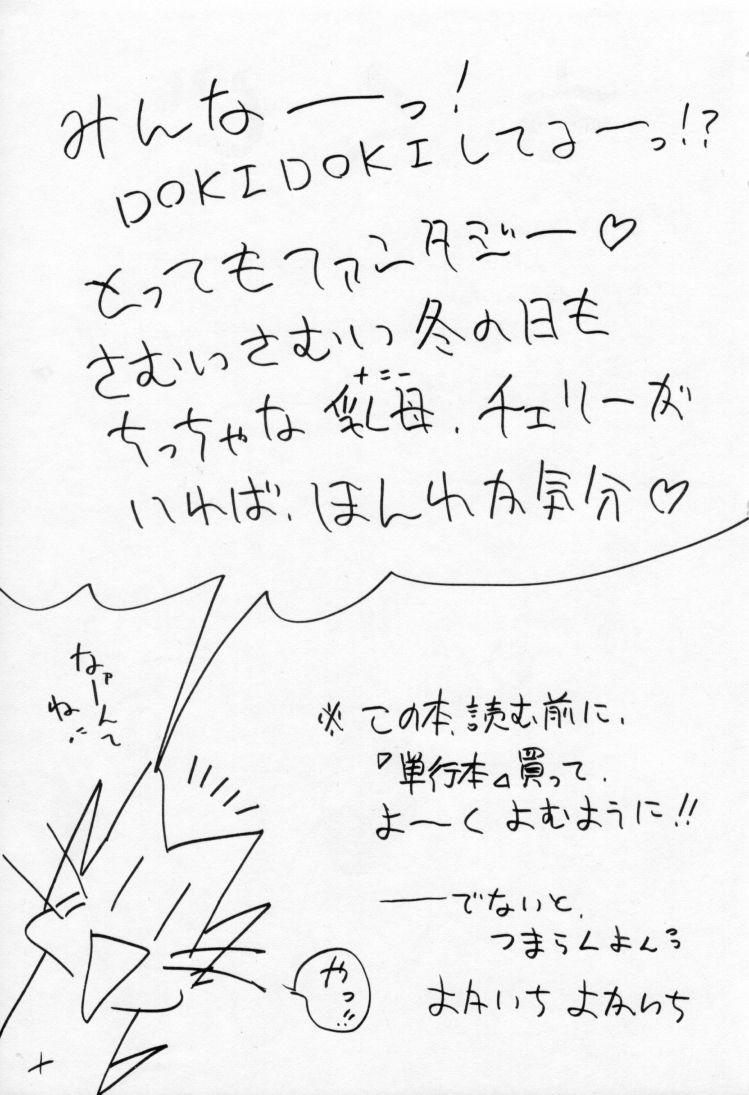 みんなーっ!
DOKIDOKIしてるーっ!?
とってもファンタジー♡
さむいさむい冬の日も
ちっちゃな乳母、チェリーが
いれば、ほんわか気分♡
なァーんて
ね
※この本、読む前に、
『単行本』買って、
よ〜くよむように!!
——でないと、
つまらんよんろ
よかいち よかいち
やっ